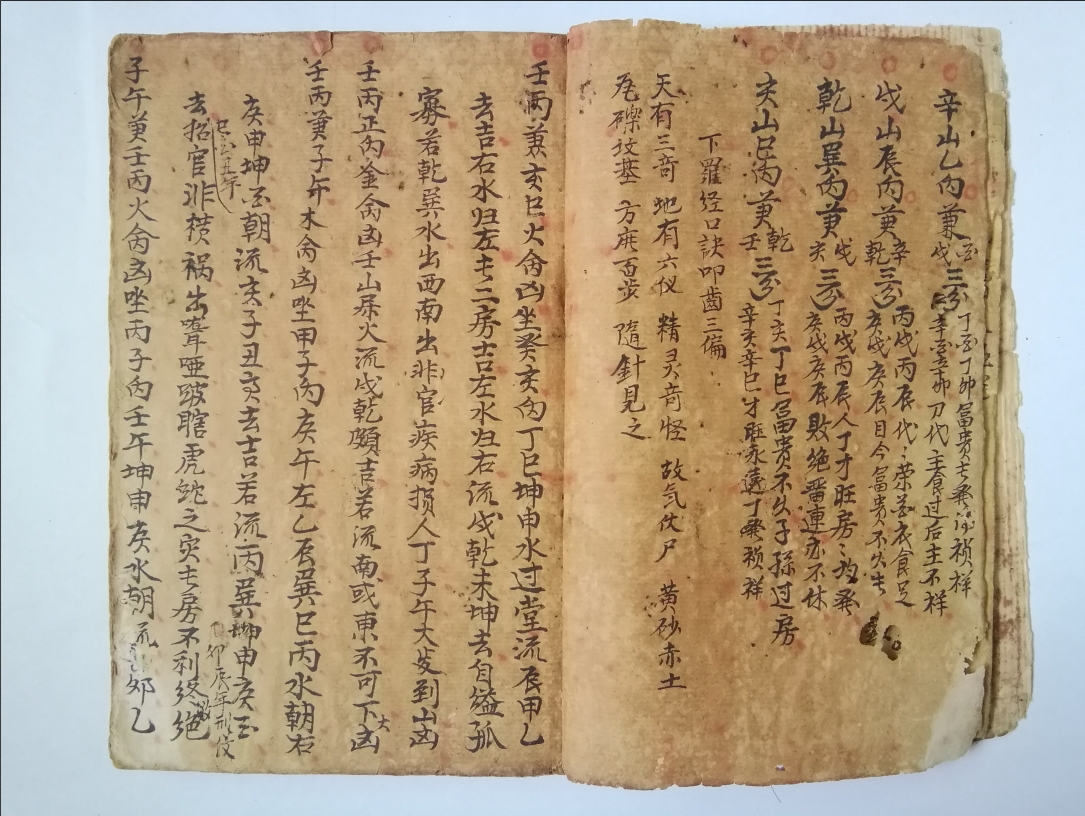 辛山乙向兼酉戌三分丁酉丁卯富贵长发祯祥
辛酉辛卯刀代主食过后主不祥
戌山辰向兼辛乾三分丙戌丙辰代代荣华衣食足
庚戌庚辰目今富贵不久长
乾山巽向兼戌亥三分丙戌丙辰人丁才旺房房均发
庚戌庚辰败绝连亦不休
亥山巳向兼乾壬三分丁亥丁巳富贵不久子孙过房
辛亥辛巳才旺永远丁发祯祥
下羅经口訣叩齒三偏
天有三奇 地有六仪 精灵奇怪 故气伏尸 黄砂赤土
瓦礫坟墓 方庑百步 隨針見之
壬丙兼亥巳火禽凶坐癸亥向丁巳坤申水过堂流辰甲乙
去吉右水归左长二房吉左水归右流戌乾未坤去自缢孤
寡若乾巽水出西南出非官疾病损人丁子午大发到山凶
壬丙正向金禽凶壬山属火流戌乾頗吉若流南或東不可下大凶
壬丙兼子午木禽凶坐甲子向庚午左乙辰巽巳丙水朝右
庚申坤酉朝流亥子丑亥去吉若流丙巽坤申庚酉
去招官非横祸出聋哑跛瞎虎蛇之灾长房不利终绝
卯辰年刑伎
子午兼壬丙火禽凶坐丙子向壬午坤申庚水朝流卯乙